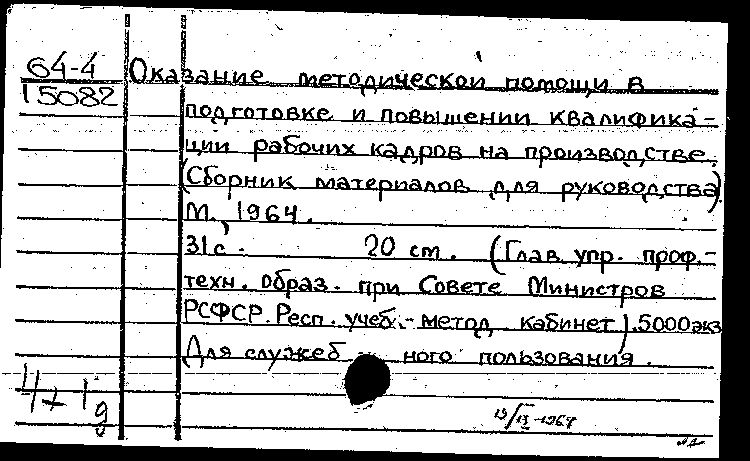 64-4
15082
Оказание методической помощи в
подготовке и повышении квалифика-
ции рабочих кадров на производстве.
(Сборник материалов для руководства).
М., 1964.
31с. 20 cm. (Глав. упр. проф.-
техн. образ. при Совете Министров
РСФСР. Респ. учеб.-метод. кабинет). 5000 экз
Для служеб ного пользования.